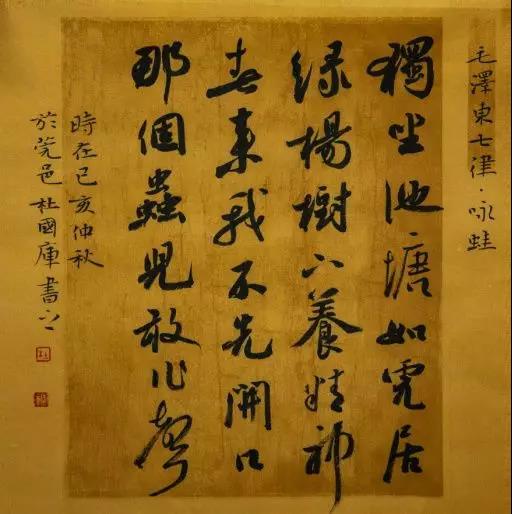 毛澤東七律·咏蛙
獨坐池塘如虎居
绿楊樹下養精神
春来我不先開口
那個蟲兒敢作聲
時在己亥仲秋
於莞邑杜國庫書之